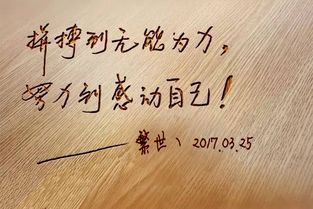 拼搏到无能为力，
努力到感动自己！
——繁世丶 2017.03.25